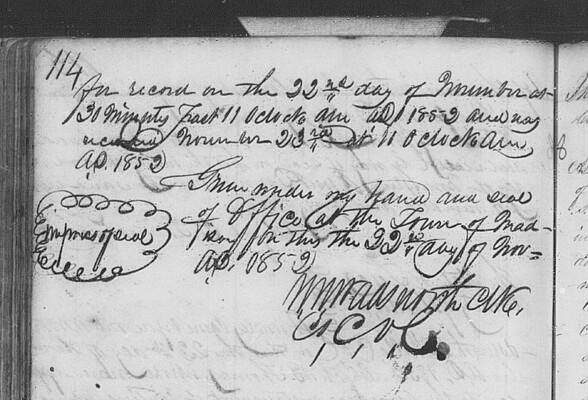 114
for record on the 22nd day of November at
30 Minuts Past 11 Oclock am AD 1852 and was
recorded November 23rd at 11 Oclock am
AD. 1852
Given under my hand and seal
of Office at the Town of Mad-
Impress of seal
ison on this the 22nd day of Nov-
AD. 1852
Wadsworth Clk.
C, C, C,